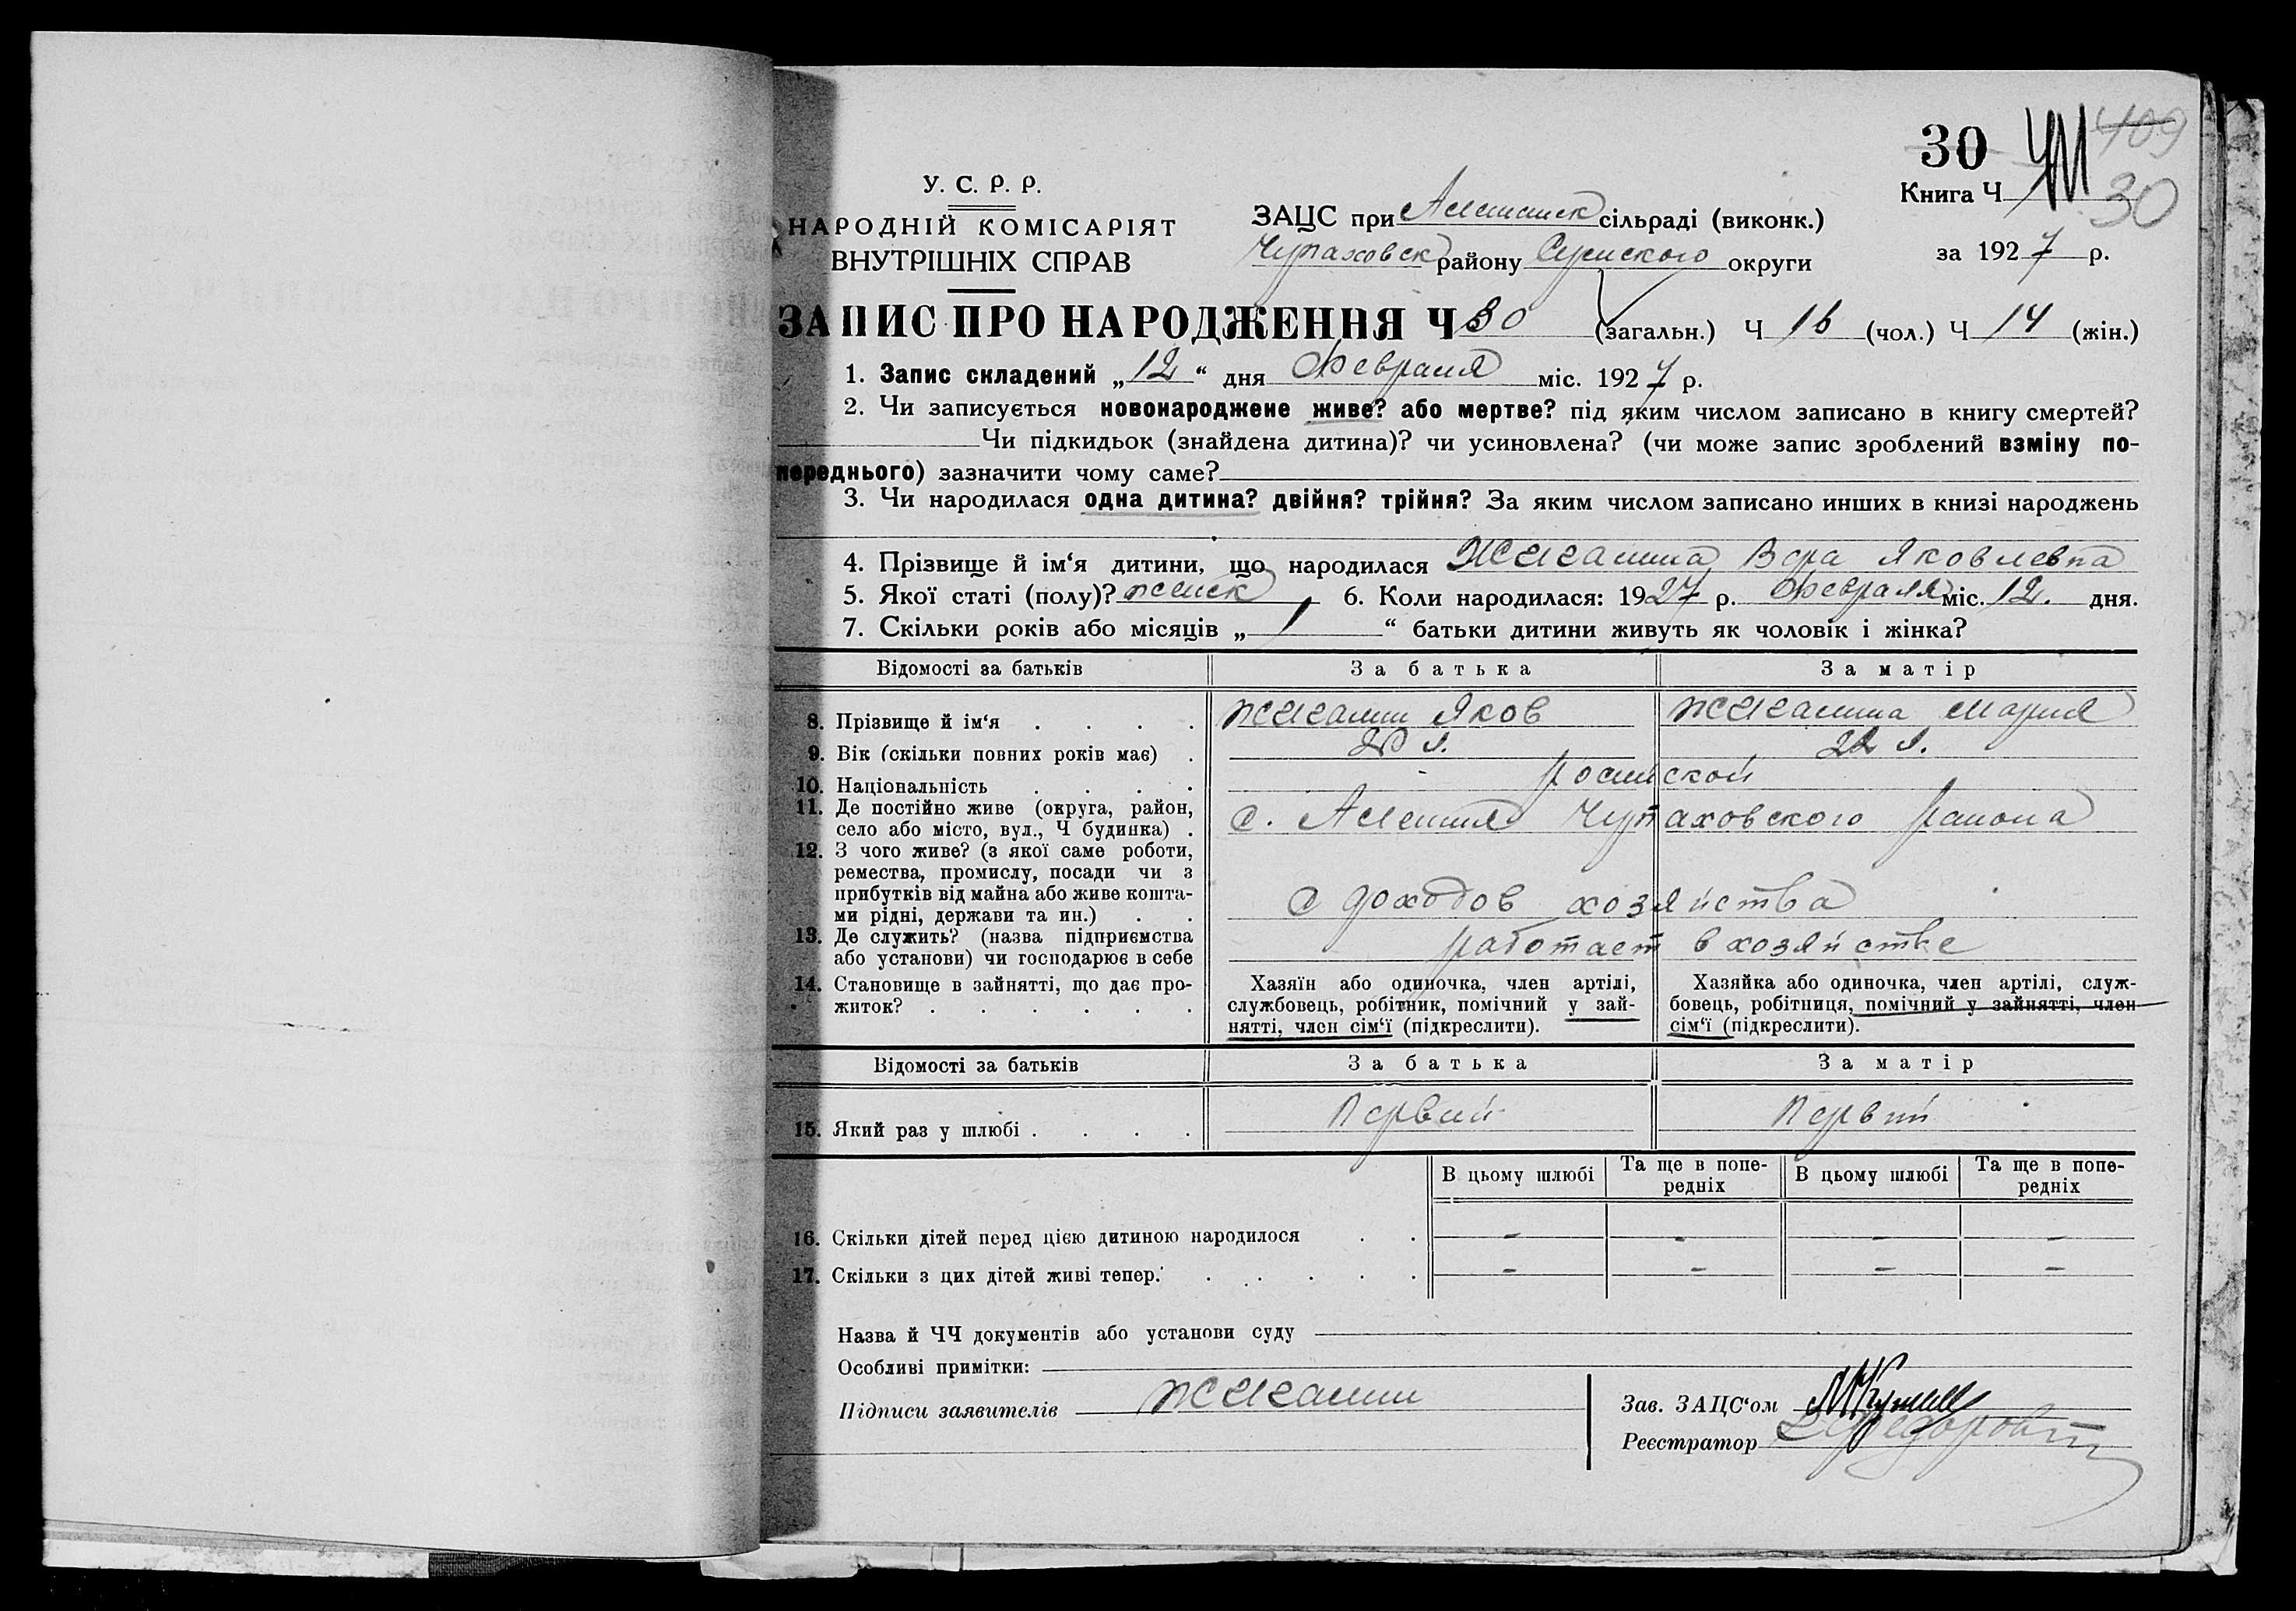 30 409
Книга Ч 30
У. С. Р. Р.
НАРОДНІЙ КОМІСАРІЯТ
ВНУТРІШНІХ СПРАВ
ЗАЦС при Алешанск сільраді (виконк.)
Чупаховск району Сумского округи
за 1927 р.
ЗАПИС ПРО НАРОДЖЕННЯ Ч 30 (загальн.) Ч 16 (чол.) Ч 14 (жін.)
1. Запис складений „12“ дня Февраля міс. 1927 р.
2. Чи записується новонароджене живе? або мертве? під яким числом записано в книгу смертей?
Чи підкидьок (знайдена дитина)? чи усиновлена? (чи може запис зроблений взміну по-
переднього) зазначити чому саме?
3. Чи народилася одна дитина? двійня? трійня? За яким числом записано инших в книзі народжень
4. Прізвище й ім‘я дитини, що народилася Жигалина Вера Яковлевна
5. Якої статі (полу)? женск 6. Коли народилася: 1927 р. Февраля міс. 12. дня.
7. Скільки років або місяців „1“ батьки дитини живуть як чоловік і жінка?
Відомості за батьків За батька За матір
8. Прізвище й ім‘я . . . . Жигалин Яков Жигалина Мария
9. Вік (скільки повних років має) . 20 л. 22 л.
10. Національність . . . . росийской
11. Де постійно живе (округа, район,
село або місто, вул., Ч будинка) . с. Алешня Чупаховского района
12. З чого живе? (з якої саме роботи,
ремества, промислу, посади чи з
прибутків від майна або живе кошта-
ми рідні, держави та ин.) . . С доходов хозяйства
13. Де служить? (назва підприємства
або установи) чи господарює в себе работает в хозяйстве
14. Становище в зайнятті, що дає про-
житок? . . . . . .
Хазяїн або одиночка, член артілі,
службовець, робітник, помічний у зай-
нятті, член сім‘ї (підкреслити).
Хазяйка або одиночка, член артілі, служ-
бовець, робітниця, помічний у зайнятті, член
сім‘ї (підкреслити).
Відомості за батьків За батька За матір
15. Який раз у шлюбі . . . . Первий Первий
В цьому шлюбі Та ще в попе- В цьому шлюбі Та ще в попе-
редніх редніх
16. Скільки дітей перед цією дитиною народилося . . – – – –
17. Скільки з цих дітей живі тепер. . . . . . . – – – –
Назва й ЧЧ документів або установи суду
Особливі примітки:
Підписи заявителів Жигалин
Зав. ЗАЦС‘ом
Реєстратор